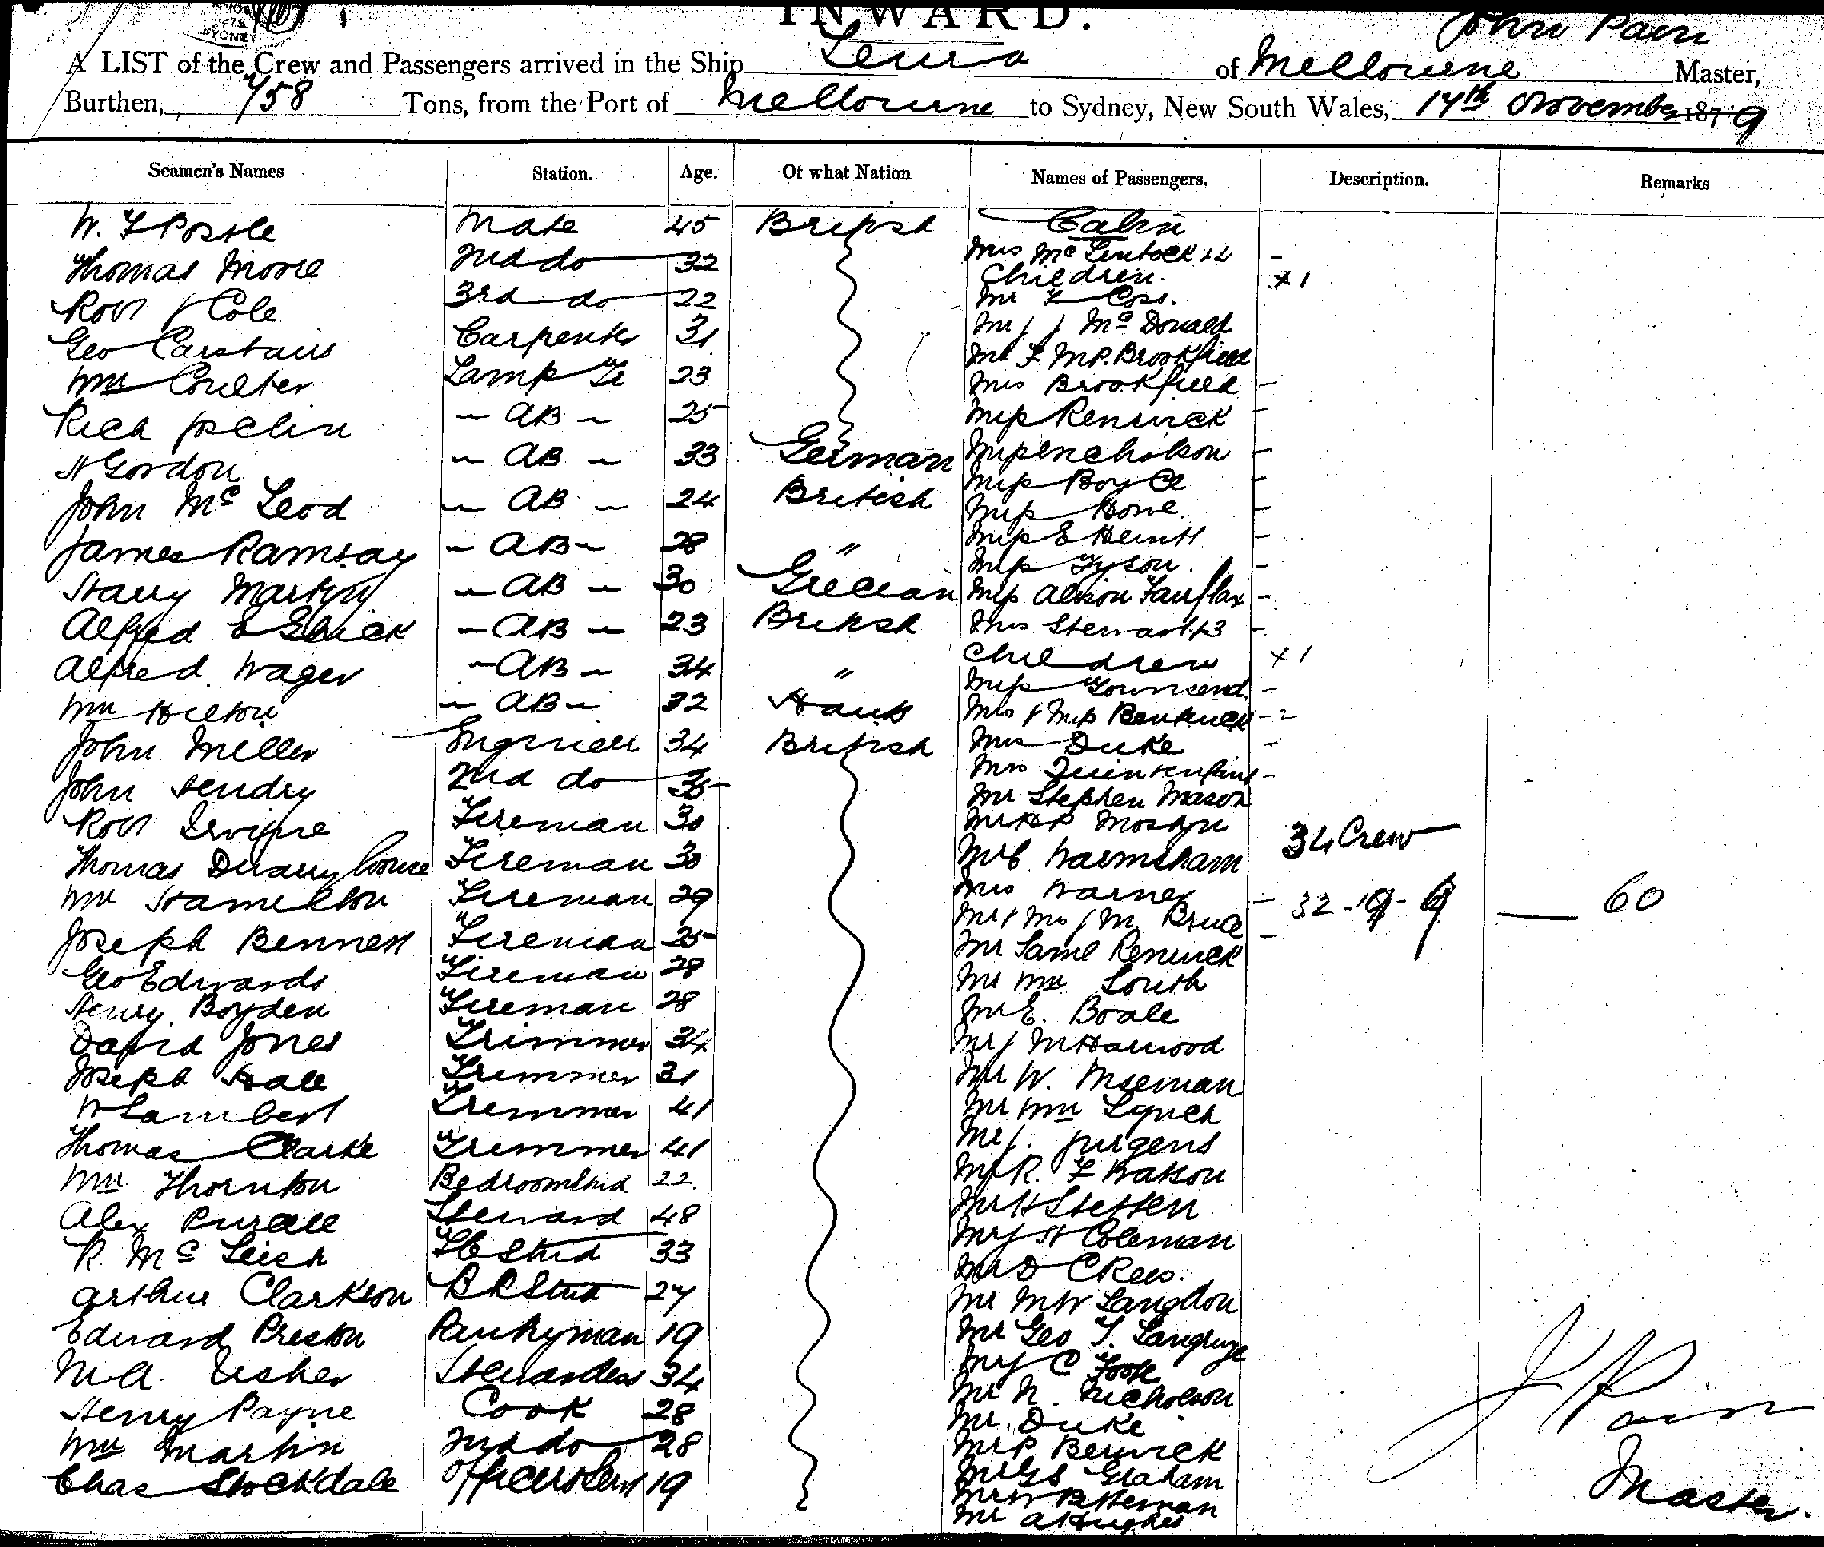 INWARD.
John Pain
A LIST of the Crew and Passengers arrived in the Ship Leura of Melbourne Master,
Burthen, 758 Tons, from the Port of Melbourne to Sydney, New South Wales, 14th November 1879
Seamen's Names Station. Age. Of what Nation Names of Passengers, Description. Remarks
W. F Postle Mate 45 British Cabin
Thomas Moore 2nd do 32 Mrs McLintock + 2 -
Children. + 1
Robt J Cole 3rd do 22 Mr F Coss.
Geo Carstairs Carpentr 31 Mr J J McDonald
Mr F. M.P. Brookfield
Wm Coulter Lamp Tr 23 Mrs Brookfield -
Rich Joslin - AB - 25 Miss Renwick -
H Gordon - AB - 33 German Miss Nicholson -
John McLeod - AB - 24 British Miss Boyce -
Miss Bowe. -
James Ramsay - AB - 28 " Miss E Hewitt -
Miss Tyson. -
Harry Martyn - AB - 30 Grecian Miss Alison Fairfax -
Alfred E Slick - AB - 23 British Mrs Stewart + 3 -
Alfred Wager - AB - 34 " Children + 1
Miss Townsend -
Wm Hilton - AB - 32 Mrs & Miss - -
John Miller Engineer 34 British Mrs Duke -
John Hendry 2nd do 35 Mrs -
Mr Stephen Mason
Robt Irvine Fireman 30 Mr H P Mostyn
34 Crew
Thomas Fireman 30 Mr C Warmsham
Wm Hamilton Fireman 29 Mrs Warner - 32 - 19 - 9 — 60
Mr & Mrs J M. Bruce -
Joseph Bennett Fireman 25 Mr Saml Renwick
Geo Edwards Fireman 28 Mr Wm South
Henry Boyden Fireman 28 Mr E. Boale
David Jones Trimmer 34 Mr J M Harwood
Joseph Hale Trimmer 31 Mr W. Wiseman
W Lambert Trimmer 41 Mr Wm Lynch
Thomas Clarke Trimmer 41 Mr J. Jurgens
Wm Thornton Bedroom Stwd 22 Mr R. F Watson
Alex Steward 48 Mr H Steffen
R. McLeish F C Stwd 33 Mr J H Coleman
Mr D C Rees.
Arthur Clarkson B R Stwd 27 Mr M W Langdon
Edward Preston Pantryman 19 Mr Geo T. Langridge
M A. Usher Stewardess 34 Mr J C Took
Mr N. Nicholson
Henry Payne Cook 28 Mr. Duke
Wm Martin 2nd do 28 Mr P Berwick
Chas Stockdale Officers Servt 19 Mr G S Graham
Mr W Bateman
Mr A Hughes
J Pain
Master.